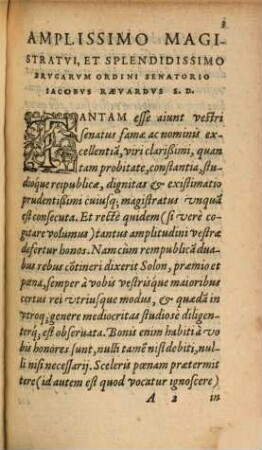 AMPLISSIMO MAGI-
STRATVI, ET SPLENDIDISSIMO
BRVGARVM ORDINI SENATORIO
IACOBVS RÆVARDVS S. D.
TANTAM esse aiunt vestri
senatus famæ ac nominis ex-
cellentiã, viri clarißimi, quan
tam probitate, constantia, stu-
dioq́ue reipublicæ, dignitas & existimatio
prudentißimi cuiusq; magistratus vnquã
est consecuta. Et rectè quidem (si verè co-
gitare volumus) tantus amplitudini vestræ
defertur honos. Nam cùm rempublicã dua-
bus rebus cõtineri dixerit Solon, præmio et
pœna, semper à vobis vestrisque maioribus
certus rei vtriusque modus, & quædã in
vtroq; genere mediocritas studiosè diligen-
terq́; est obseruata. Bonis enim habiti à vo
bis honores sunt, nulli tamẽ nisi debiti, nul-
li nisi necessarij. Sceleris pœnam prætermit
tere (id autem est quod vocatur ignoscere)
A 2 in